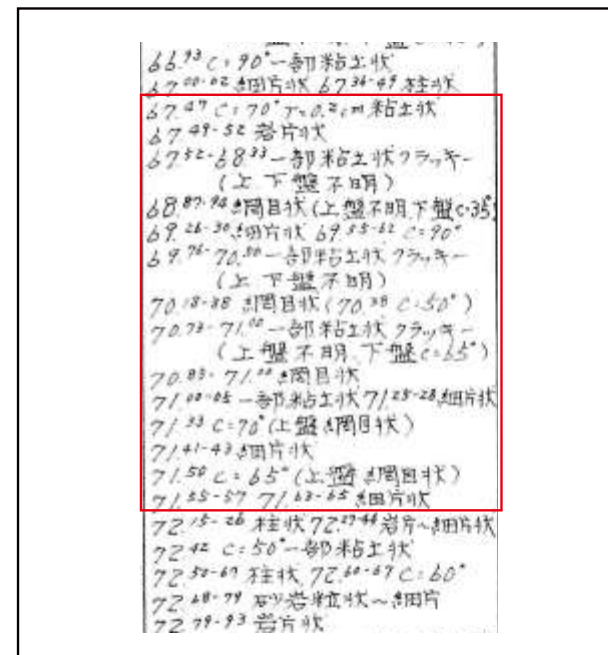 66.93 C=90°一部粘土状
67.00-02 細片状 67.34-49 柱状
67.47 C=70° T=0.2cm 粘土状
67.49-52 岩片状
67.52-68.33 一部粘土状クラッキー
(上、下盤不明)
68.87-94 網目状(上盤不明、下盤C=35°)
69.26-30 細片状 69.55-62 C=90°
69.76-70.50 一部粘土状クラッキー
(上、下盤不明)
70.18-38 網目状(70.38 C=50°)
70.73-71.00 一部粘土状クラッキー
(上盤不明、下盤C=65°)
70.83-71.00 網目状
71.00-05 一部粘土状 71.25-28 細片状
71.33 C=70°(上盤網目状)
71.41-43 細片状
71.50 C=65°(上盤網目状)
71.55-57 71.63-65 細片状
72.15-26 柱状 72.27-44 岩片~細片状
72.42 C=50°一部粘土状
72.50-67 柱状 72.60-67 C=60°
72.68-79 砂岩粒状~細片
72.79-93 岩片状